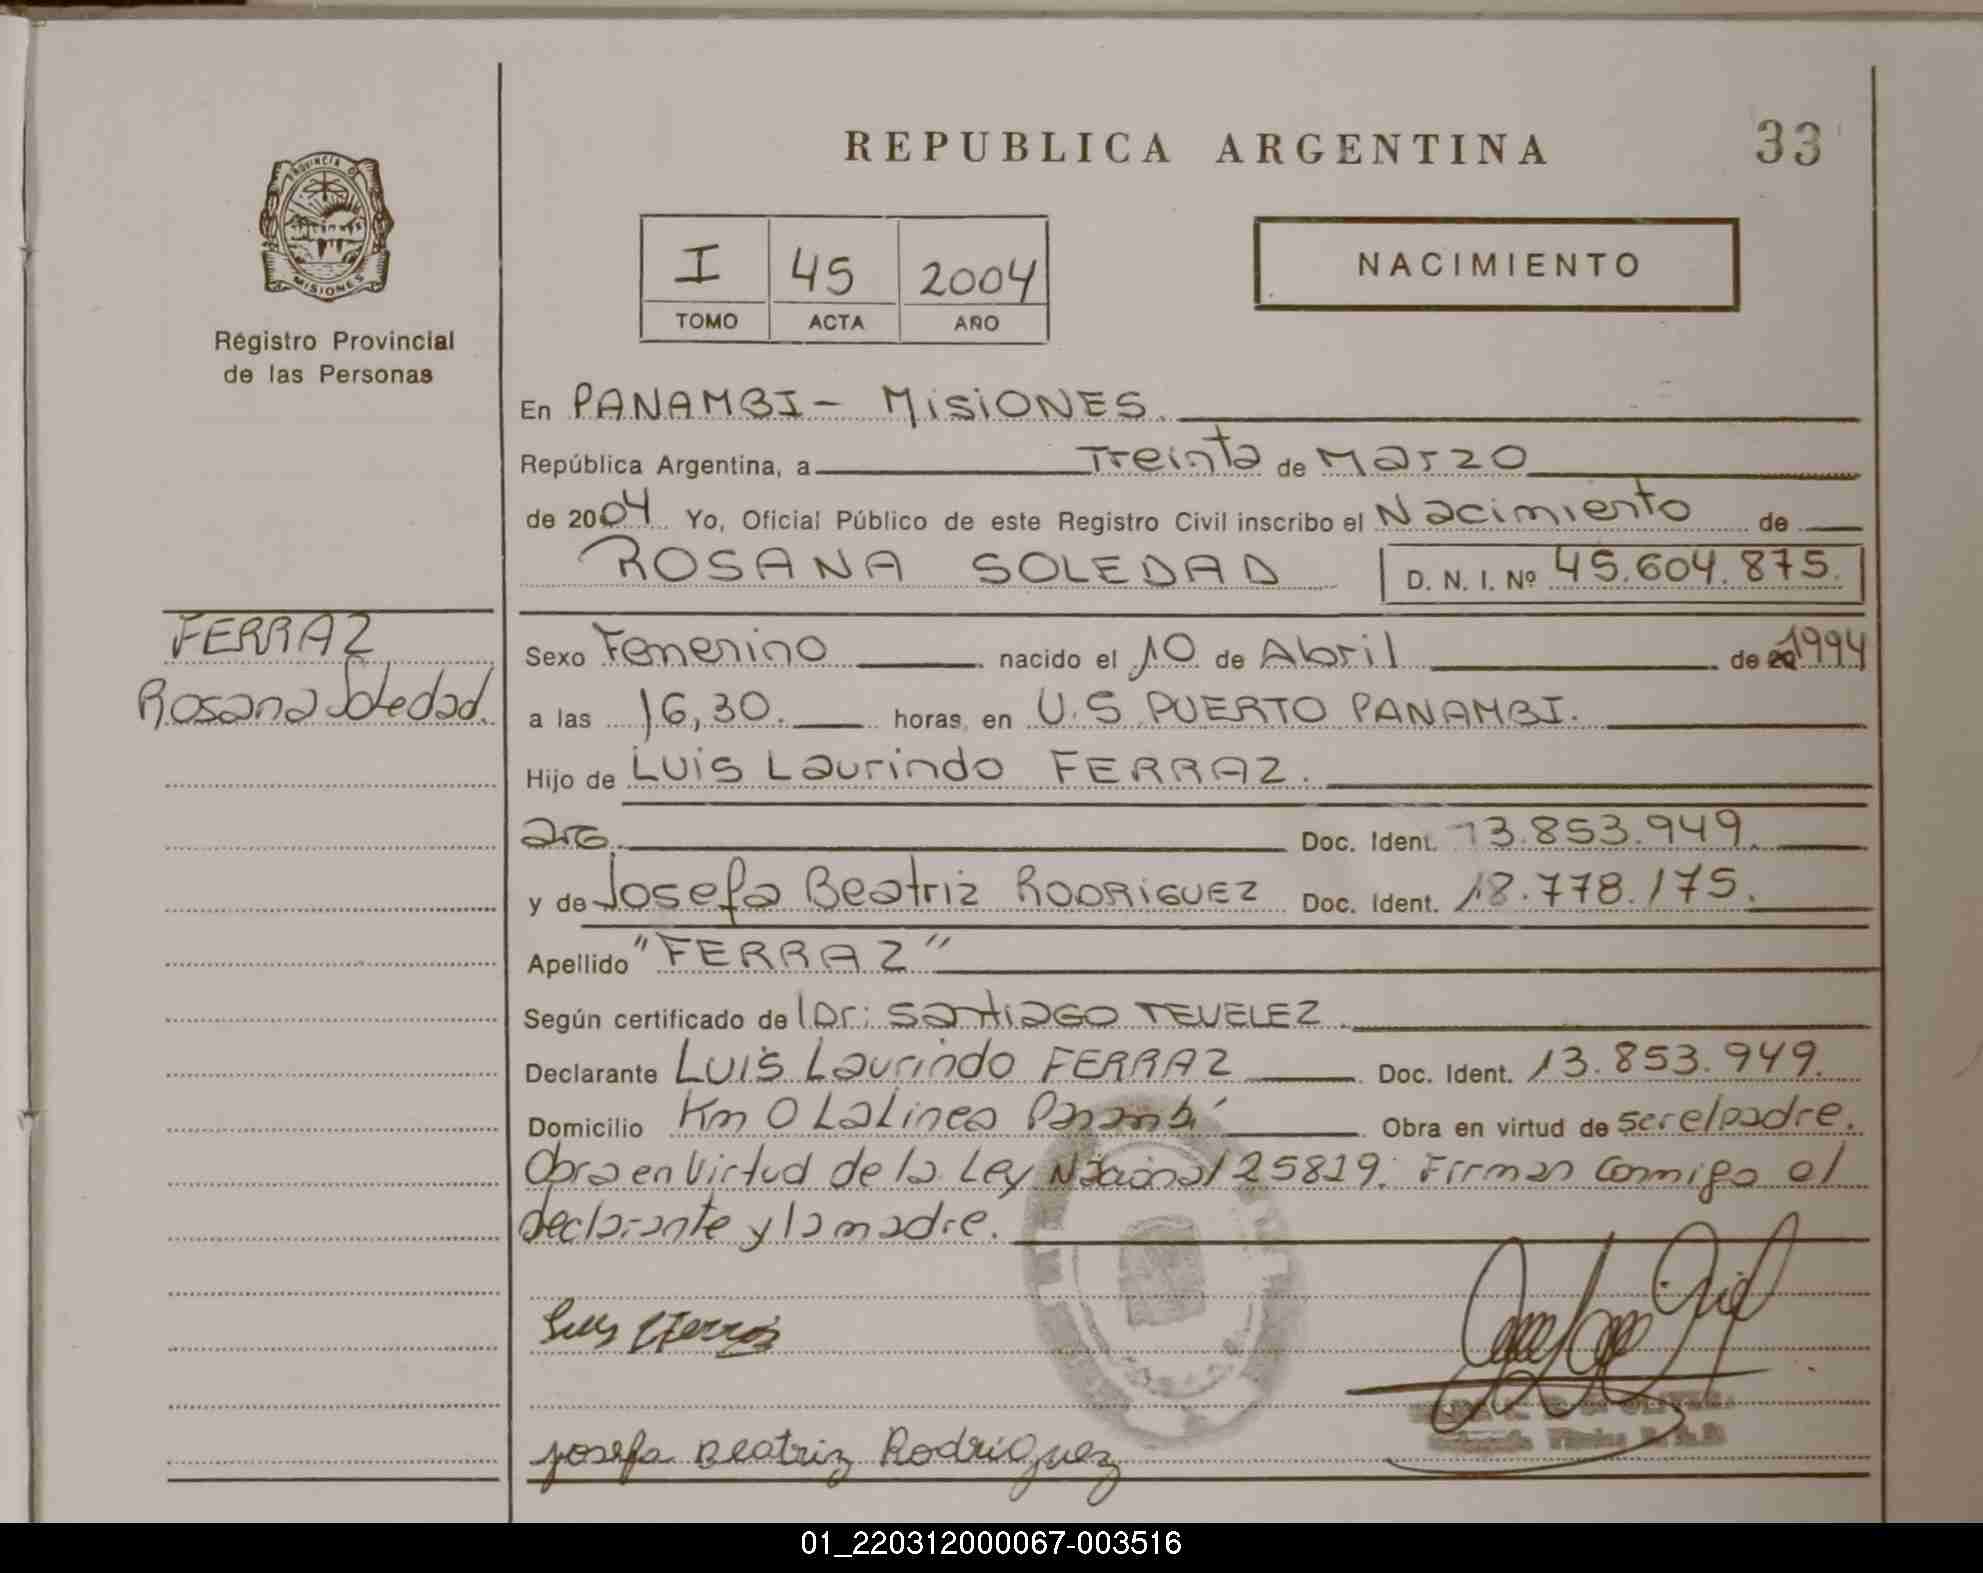 REPUBLICA ARGENTINA
33
PROVINCIA DE
MISIONES
Registro Provincial
de las Personas
I 45 2004
TOMO ACTA AÑO
NACIMIENTO
En PANAMBI - MisiONES.
República Argentina, a Treinta de Marzo
de 2004 Yo, Oficial Público de este Registro Civil inscribo el Nacimiento de
ROSANA SOLEDAD D. N. I. Nº 45.604.875.
FERRAZ
Rosana Soledad.
Sexo Femenino nacido el 10 de Abril de 20 1994
a las 16,30. horas, en U.S PUERTO PANAMBI.
Hijo de Luis Laurindo FERRAZ.
arg. Doc. Ident. 13.853.949.
y de Josefa Beatriz RODRIGUEZ Doc. Ident. 18.778.175.
Apellido "FERRAZ"
Según certificado de Dr: Santiago TEVELEZ.
Declarante Luis Laurindo FERRAZ Doc. Ident. 13.853.949.
Domicilio Km 0 La Linea Panambí Obra en virtud de ser el padre.
Obra en Virtud de la Ley Nacional 25819. Firman Conmigo el
declarante y la madre.
Josefa Beatriz Rodriguez
01_220312000067-003516